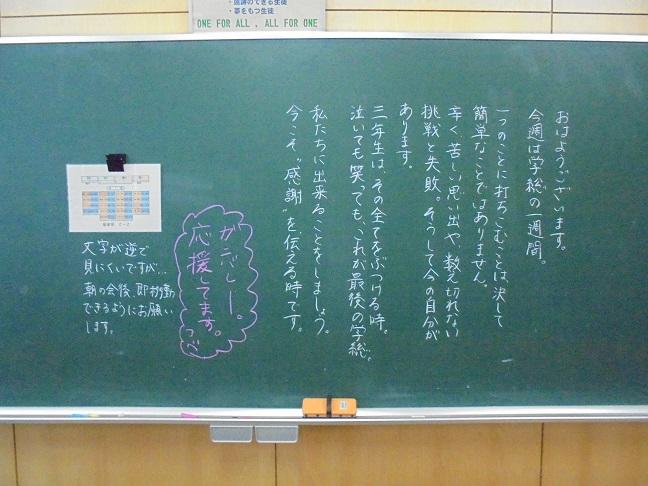 ・感謝のできる生徒
・夢をもつ生徒
ONE FOR ALL , ALL FOR ONE
おはようございます。
今週は学総の一週間。
一つのことに打ちこむことは、決して
簡単なことではありません。
辛く苦しい思い出や、数え切れない
挑戦と失敗。そうして今の自分が
あります。
三年生は、その全てをぶつける時。
泣いても笑っても、これが最後の学総。
私たちに出来ることをしましょう。
今こそ“感謝”を伝える時です。
応援してます。
文字が逆で
見にくいですが、、
朝の会後、即移動
できるようにお願い
します。